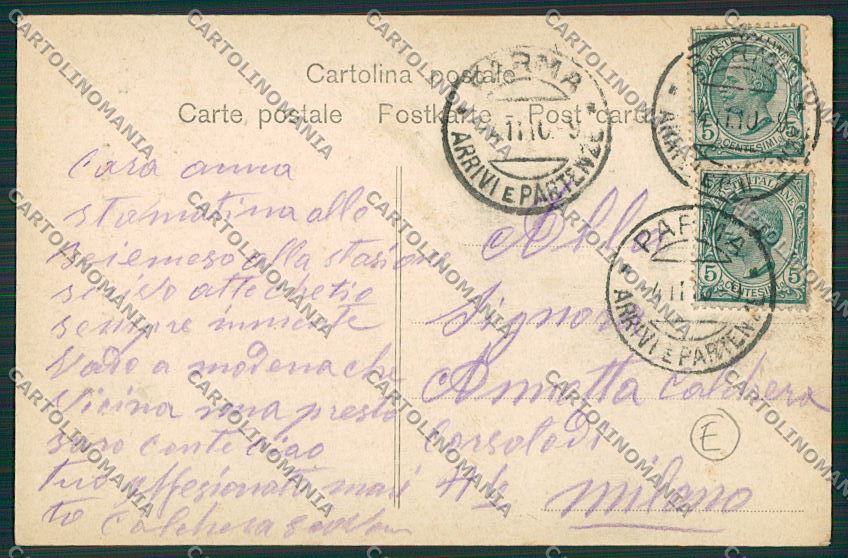 Cartolina postale
Carte postale Postkarte Post carta
PARMA
ARRIVI E PARTENZE
PARMA
ARRIVI E PARTENZE
POSTE ITALIANE
5 CENTESIMI 5
5 CENTESIMI 5
Cara anna
stamatina alle
seiemeso alla stasione
scrivo
sempre in mente
Vado a modena che
Vicina ma presto
saro conte ciao
tuo affesionato mari
to Calchera
Alla
Signora
Annetta Calchera
Corsolodi
milano
E
CARTOLINOMANIA